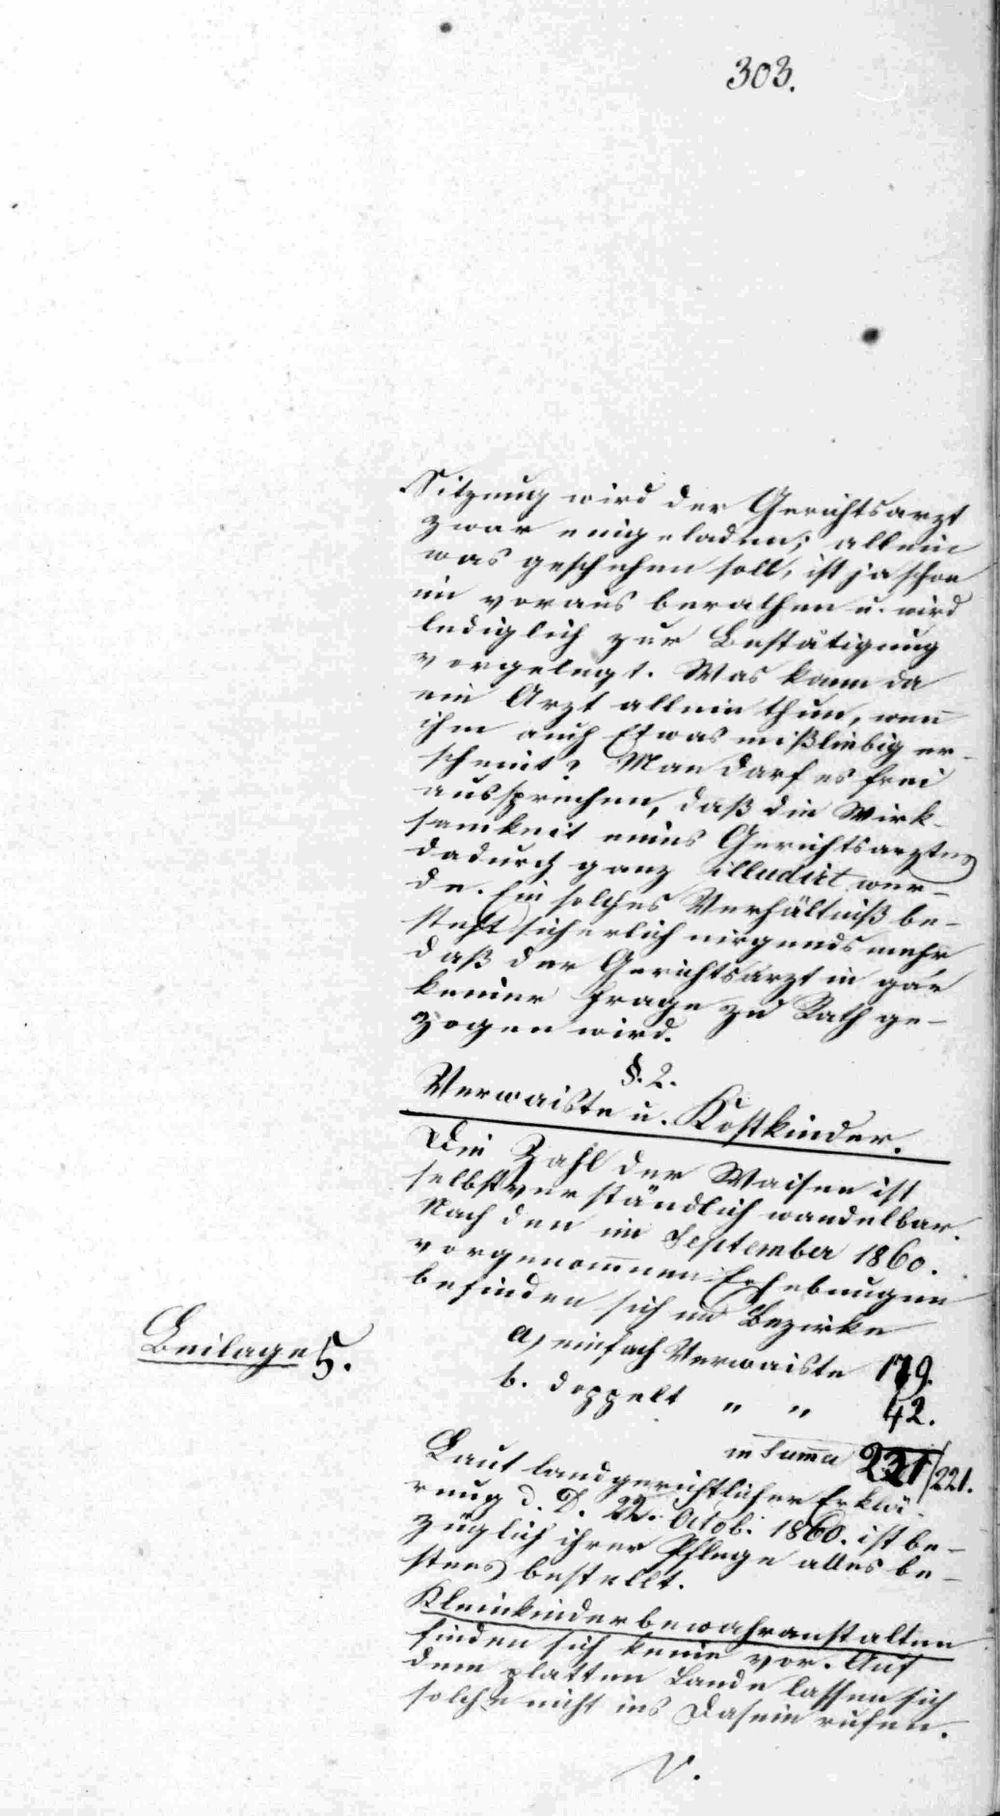 303.
Sitzung wird der Gerichtsarzt
zwar eingeladen; allein
was geschehen soll, ist ja schon
im voraus berathen u. wird
lediglich zur Bestätigung
vorgelegt. Was kann da
ein Arzt allein thun, wenn
ihm auch Etwas mißliebig er-
scheint? Man darf es frei
aussprechen, daß die Wirk-
samkeit eines Gerichtsarztes
dadurch ganz illudirt wer-
de. Ein solches Verhältniß be-
steht sicherlich nirgends mehr
daß der Gerichtsarzt in gar
keiner Frage zu Rath ge-
zogen wird.
§. 2.
Verwaiste u. Kostkinder.
Die Zahl der Waisen ist
selbstverständlich wandelbar.
Nach den im September 1860.
vorgenommenen Erhebungen
befinden sich im Bezirke
Beilage 5.
a) einfach Verwaiste 179.
b. doppelt " " 42.
in Summa 221/221.
Laut landgerichtlicher Erklä-
rung d. D. 22. Octob. 1860. ist be-
züglich ihrer Pflege alles be-
stens bestellt.
Kleinkinderbewahranstalten
finden sich keine vor. Auf
dem platten Lande lassen sich
solche nicht ins Dasein rufen.
V.